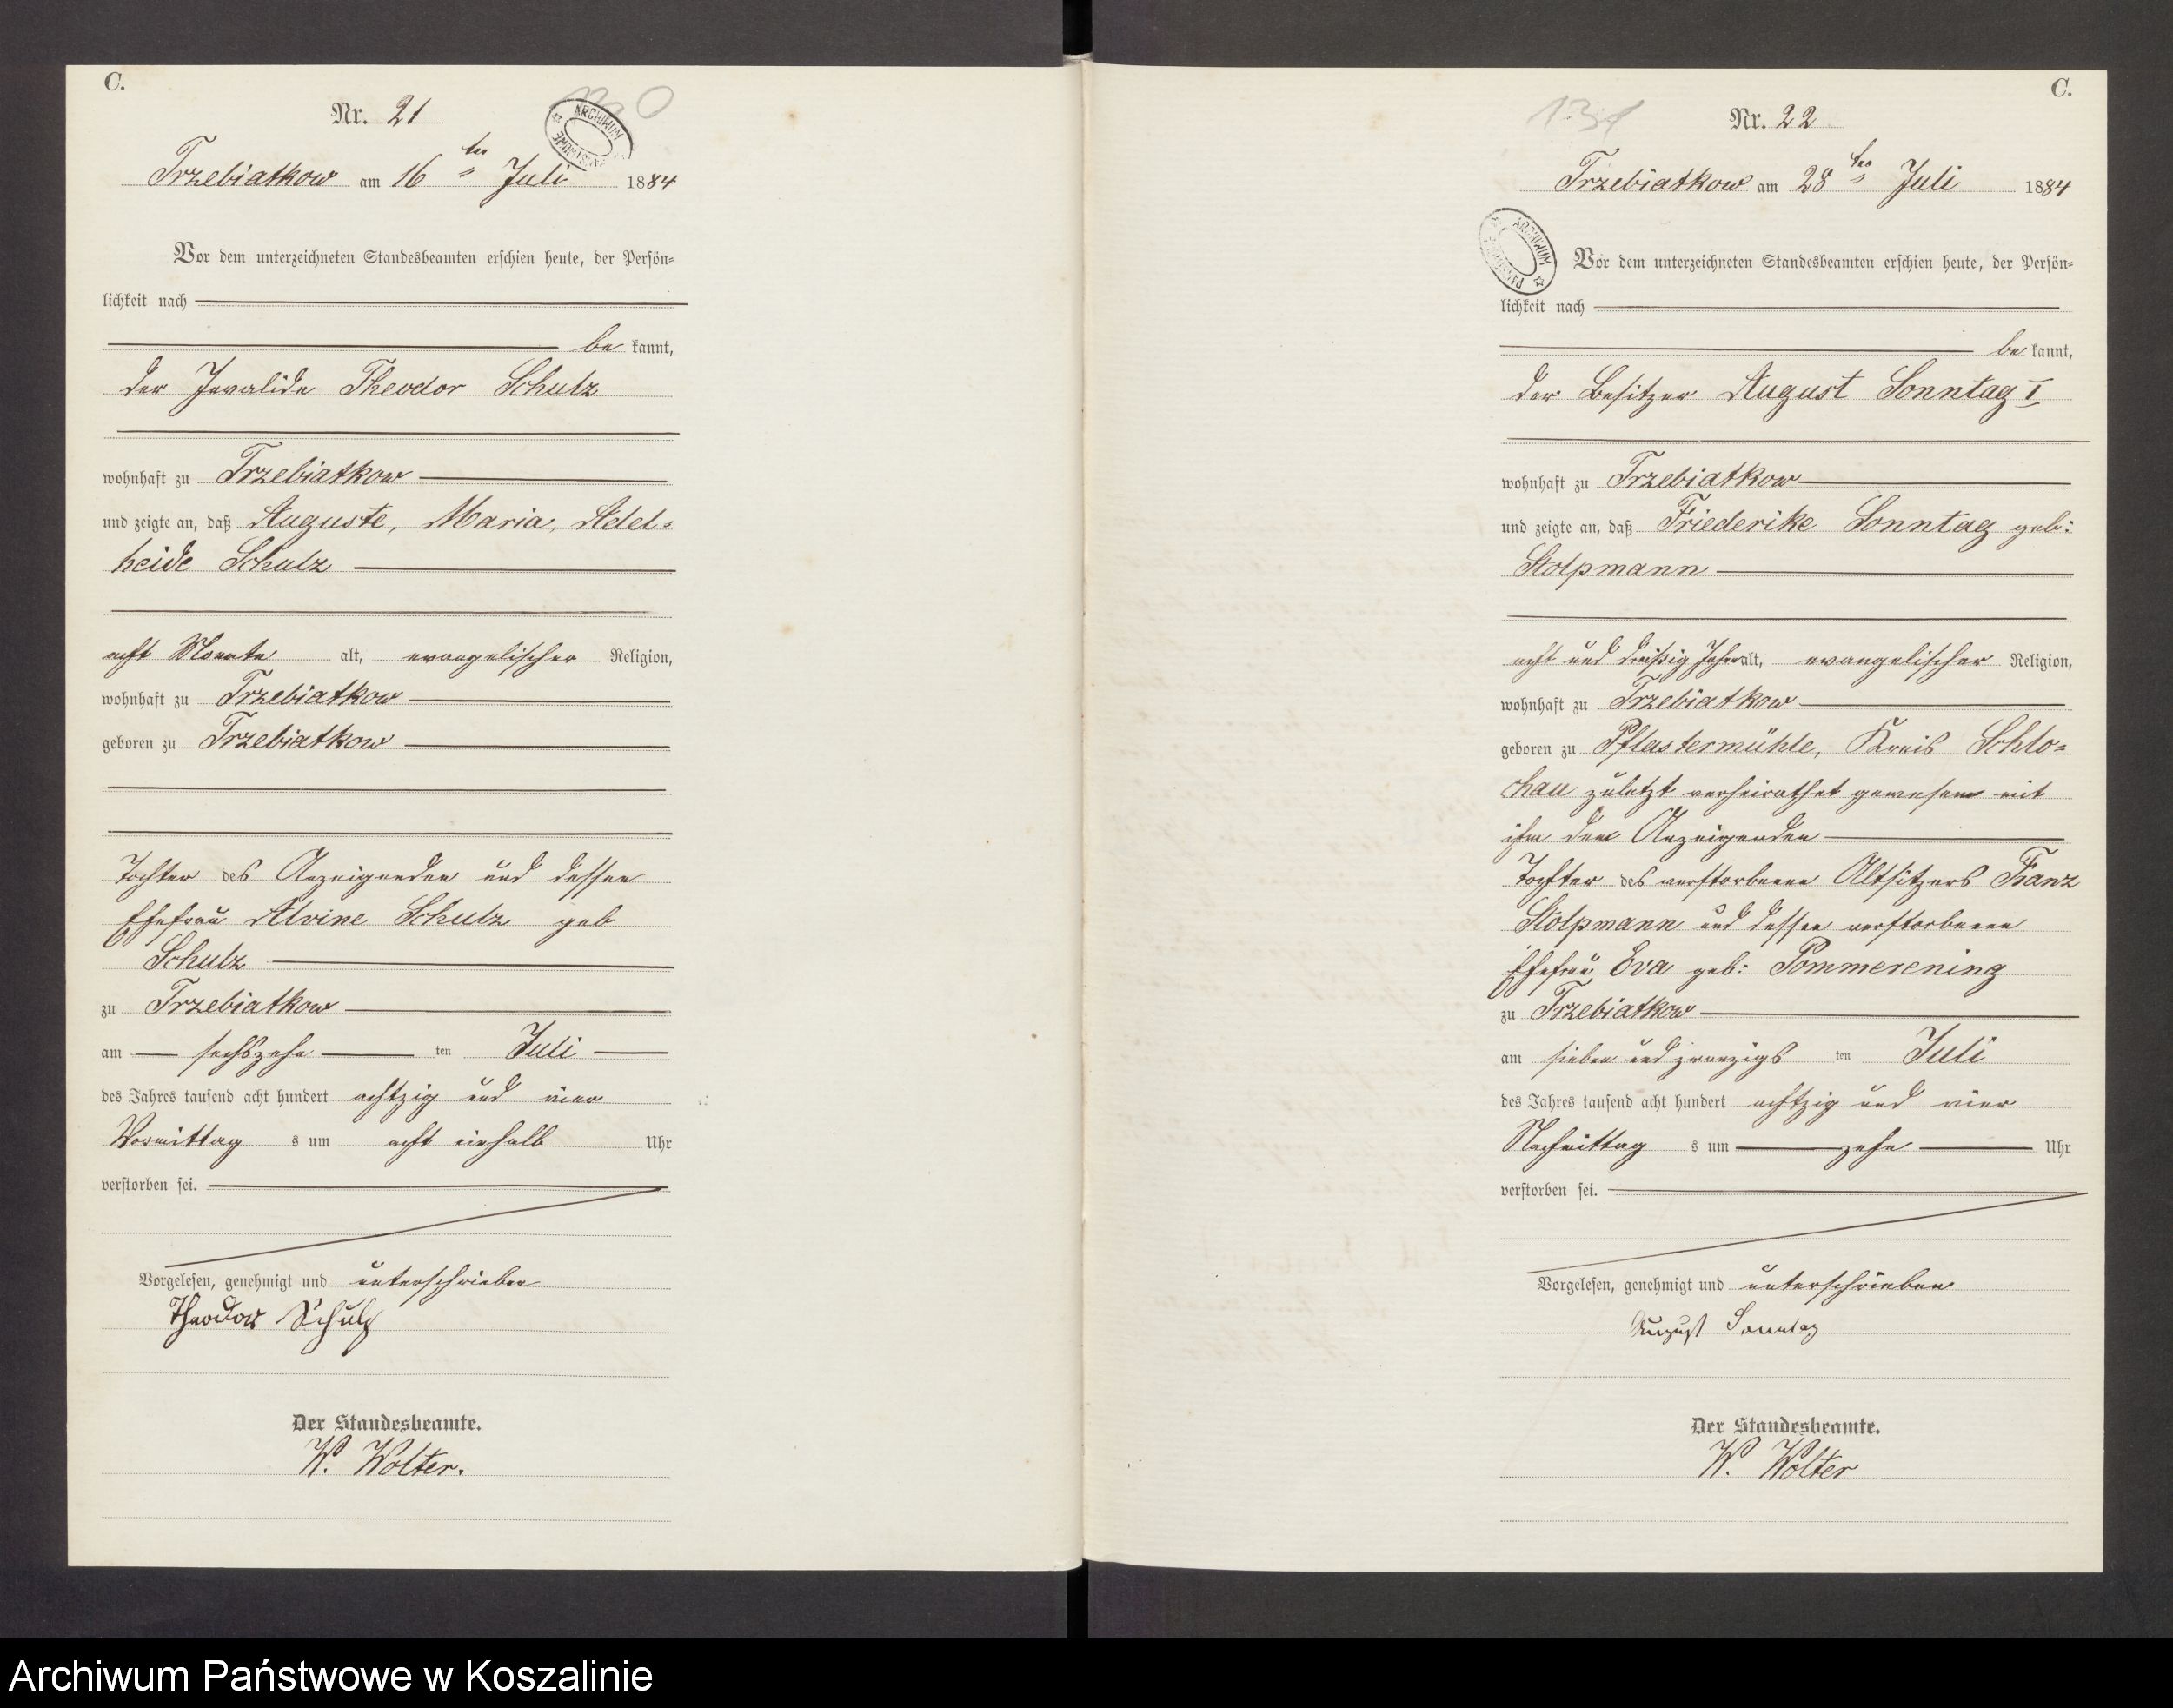 C.
Nr. 21
130
ARCHIWUM PAŃSTWOWE
Trzebiatkow am 16ten Juli 1884
Vor dem unterzeichneten Standesbeamten erschien heute, der Persön=
lichkeit nach
be kannt,
der Invalide Theodor Schulz
wohnhaft zu Trzebiatkow
und zeigte an, daß Auguste, Maria, Adel=
heide Schulz
acht Monate alt, evangelischer Religion,
wohnhaft zu Trzebiatkow
geboren zu Trzebiatkow
Tochter des Anzeigenden und dessen
Ehefrau Alvine Schulz geb
Schulz
zu Trzebiatkow
am sechszehn ten Juli
des Jahres tausend acht hundert achtzig und vier
Vormittag s um acht einhalb Uhr
verstorben sei.
Vorgelesen, genehmigt und unterschrieben
Theodor Schulz
Der Standesbeamte.
W. Wolter.
C.
131
Nr. 22
Trzebiatkow am 28ten Juli 1884
ARCHIWUM PAŃSTWOWE
Vor dem unterzeichneten Standesbeamten erschien heute, der Persön=
lichkeit nach
be kannt,
der Besitzer August Sonntag I
wohnhaft zu Trzebiatkow
und zeigte an, daß Friederike Sonntag geb:
Stolpmann
acht und dreißig Jahre alt, evangelischer Religion,
wohnhaft zu Trzebiatkow
geboren zu Pflastermühle, Kreis Schlo=
chau zuletzt verheirathet gewesen mit
ihm dem Anzeigenden
Tochter des verstorbenen Altsitzers Franz
Stolpmann und dessen verstorbenen
Ehefrau Eva geb: Pommerening
zu Trzebiatkow
am sieben und zwanzigs ten Juli
des Jahres tausend acht hundert achtzig und vier
Nachmittag s um zehn Uhr
verstorben sei.
Vorgelesen, genehmigt und unterschrieben
August Sonntag
Der Standesbeamte.
W. Wolter
Archiwum Państwowe w Koszalinie